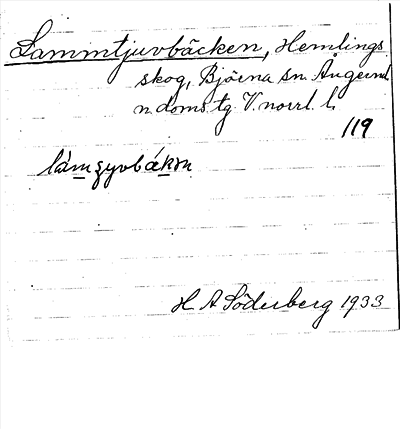 Lammtjuvbäcken, Hemlings
skog, Björna sn. Ångerml.
n. doms. tg V. norrl. l.
119
H A Söderberg 1933